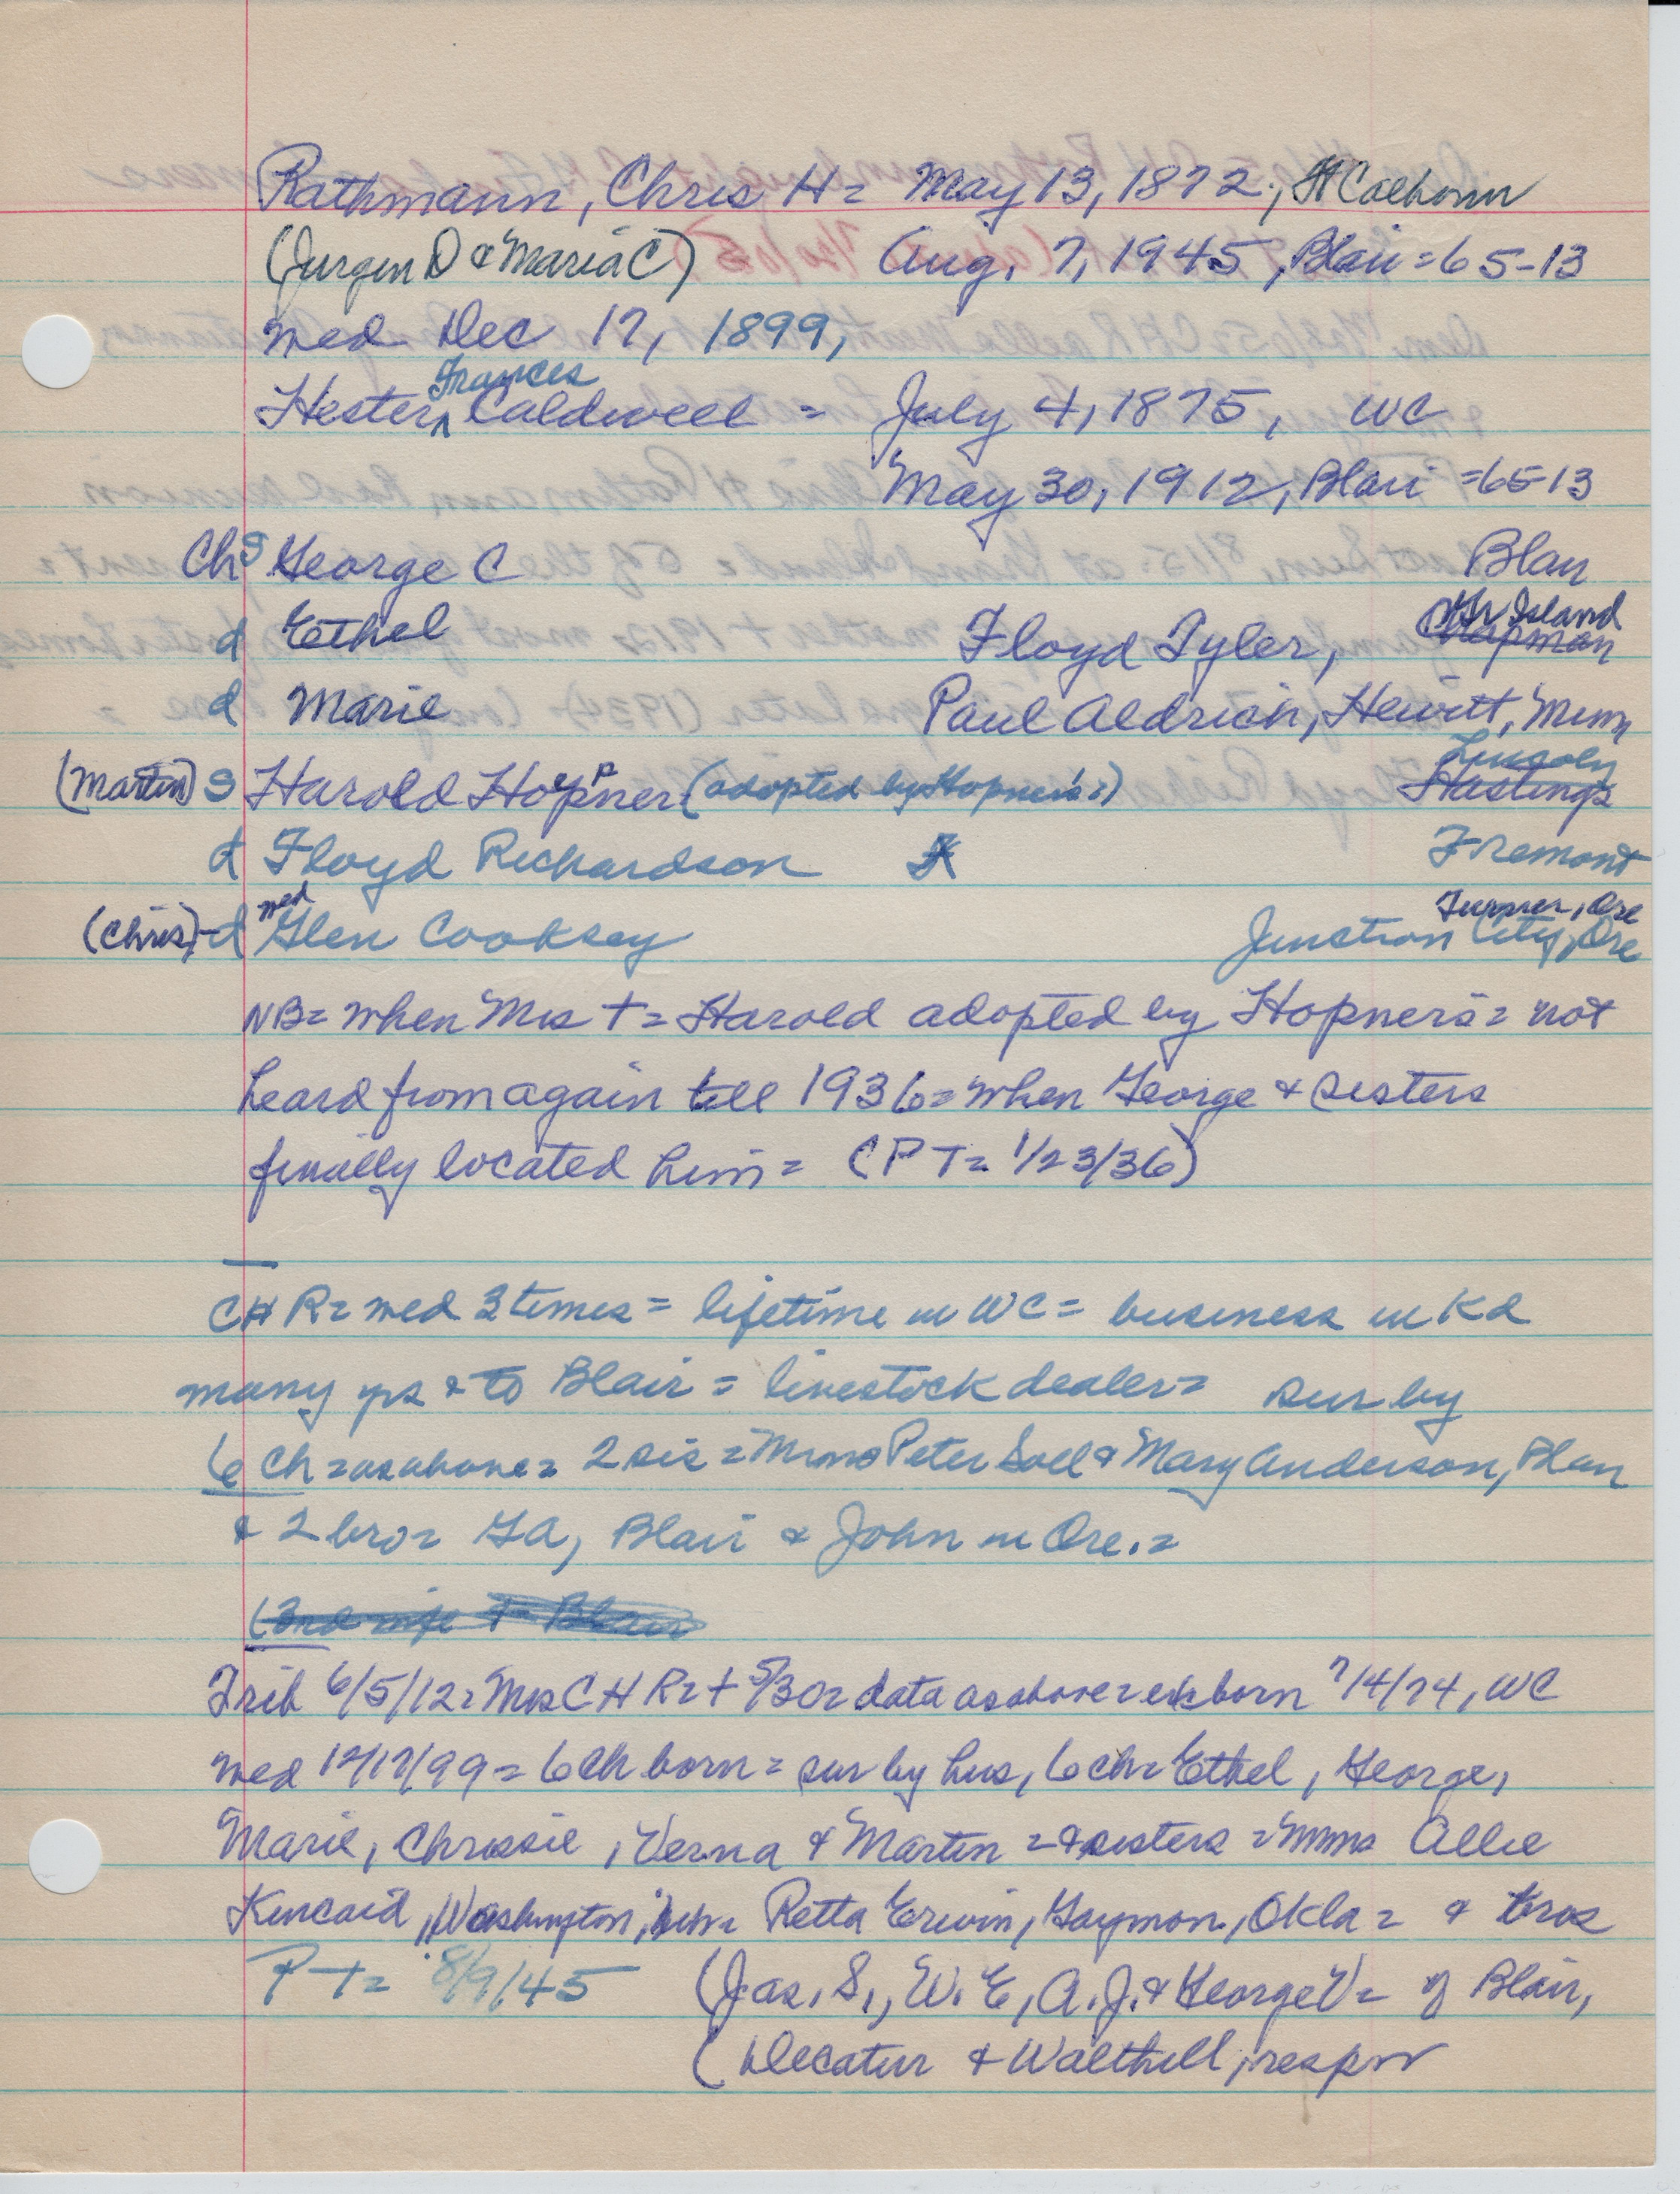 Rathmann, Chris H = May 13, 1872, Ft Calhoun
(Jurgen D & Maria C) Aug. 7, 1945, Blair = 65-13
med Dec 17, 1899,
Frances
Hester ^ Caldwell = July 4, 1875, WC
May 30, 1912, Blair = 65-13
Ch s George C Blair
d Ethel Floyd Tyler, Gr Island
Chapman
d Marie Paul Aldrich, Hewitt, Minn
Lincoln
(Martin) s Harold Hopner (adopted by Hopners =) Hastings
d Floyd Richardson Fremont
med Turner, Ore
(Chris) - d Glen Cooksey Junction City, Ore
NB = when Mrs + = Harold adopted by Hopners = not
heard from again till 1936 = when George & sisters
finally located him = (P T = 1/23/36)
C H R = med 3 times = lifetime in WC = business in Kd
many yrs & to Blair = livestock dealer = sur by
6 Ch = as above = 2 sis = Mmes Peter Soll & Mary Anderson, Blair
& 2 bro = GA, Blair & John in Ore. =
(3rd wife + Blair
Trib 6/5/12 = Mrs C H R = + 5/30 = data as above = ex born 7/4/74, WC
med 12/17/99 = 6 Ch born = sur by hus, 6 ch = Ethel, George,
Marie, Chrissie, Verna & Martin = & sisters = Mmes Allie
Kincaid, Washington, Retta Erwin, Guymon, Okla = & bros
P T = 8/9/45 (Jas. S., W. E, A. J. & George V = of Blair,
(Decatur & Walthill, resp